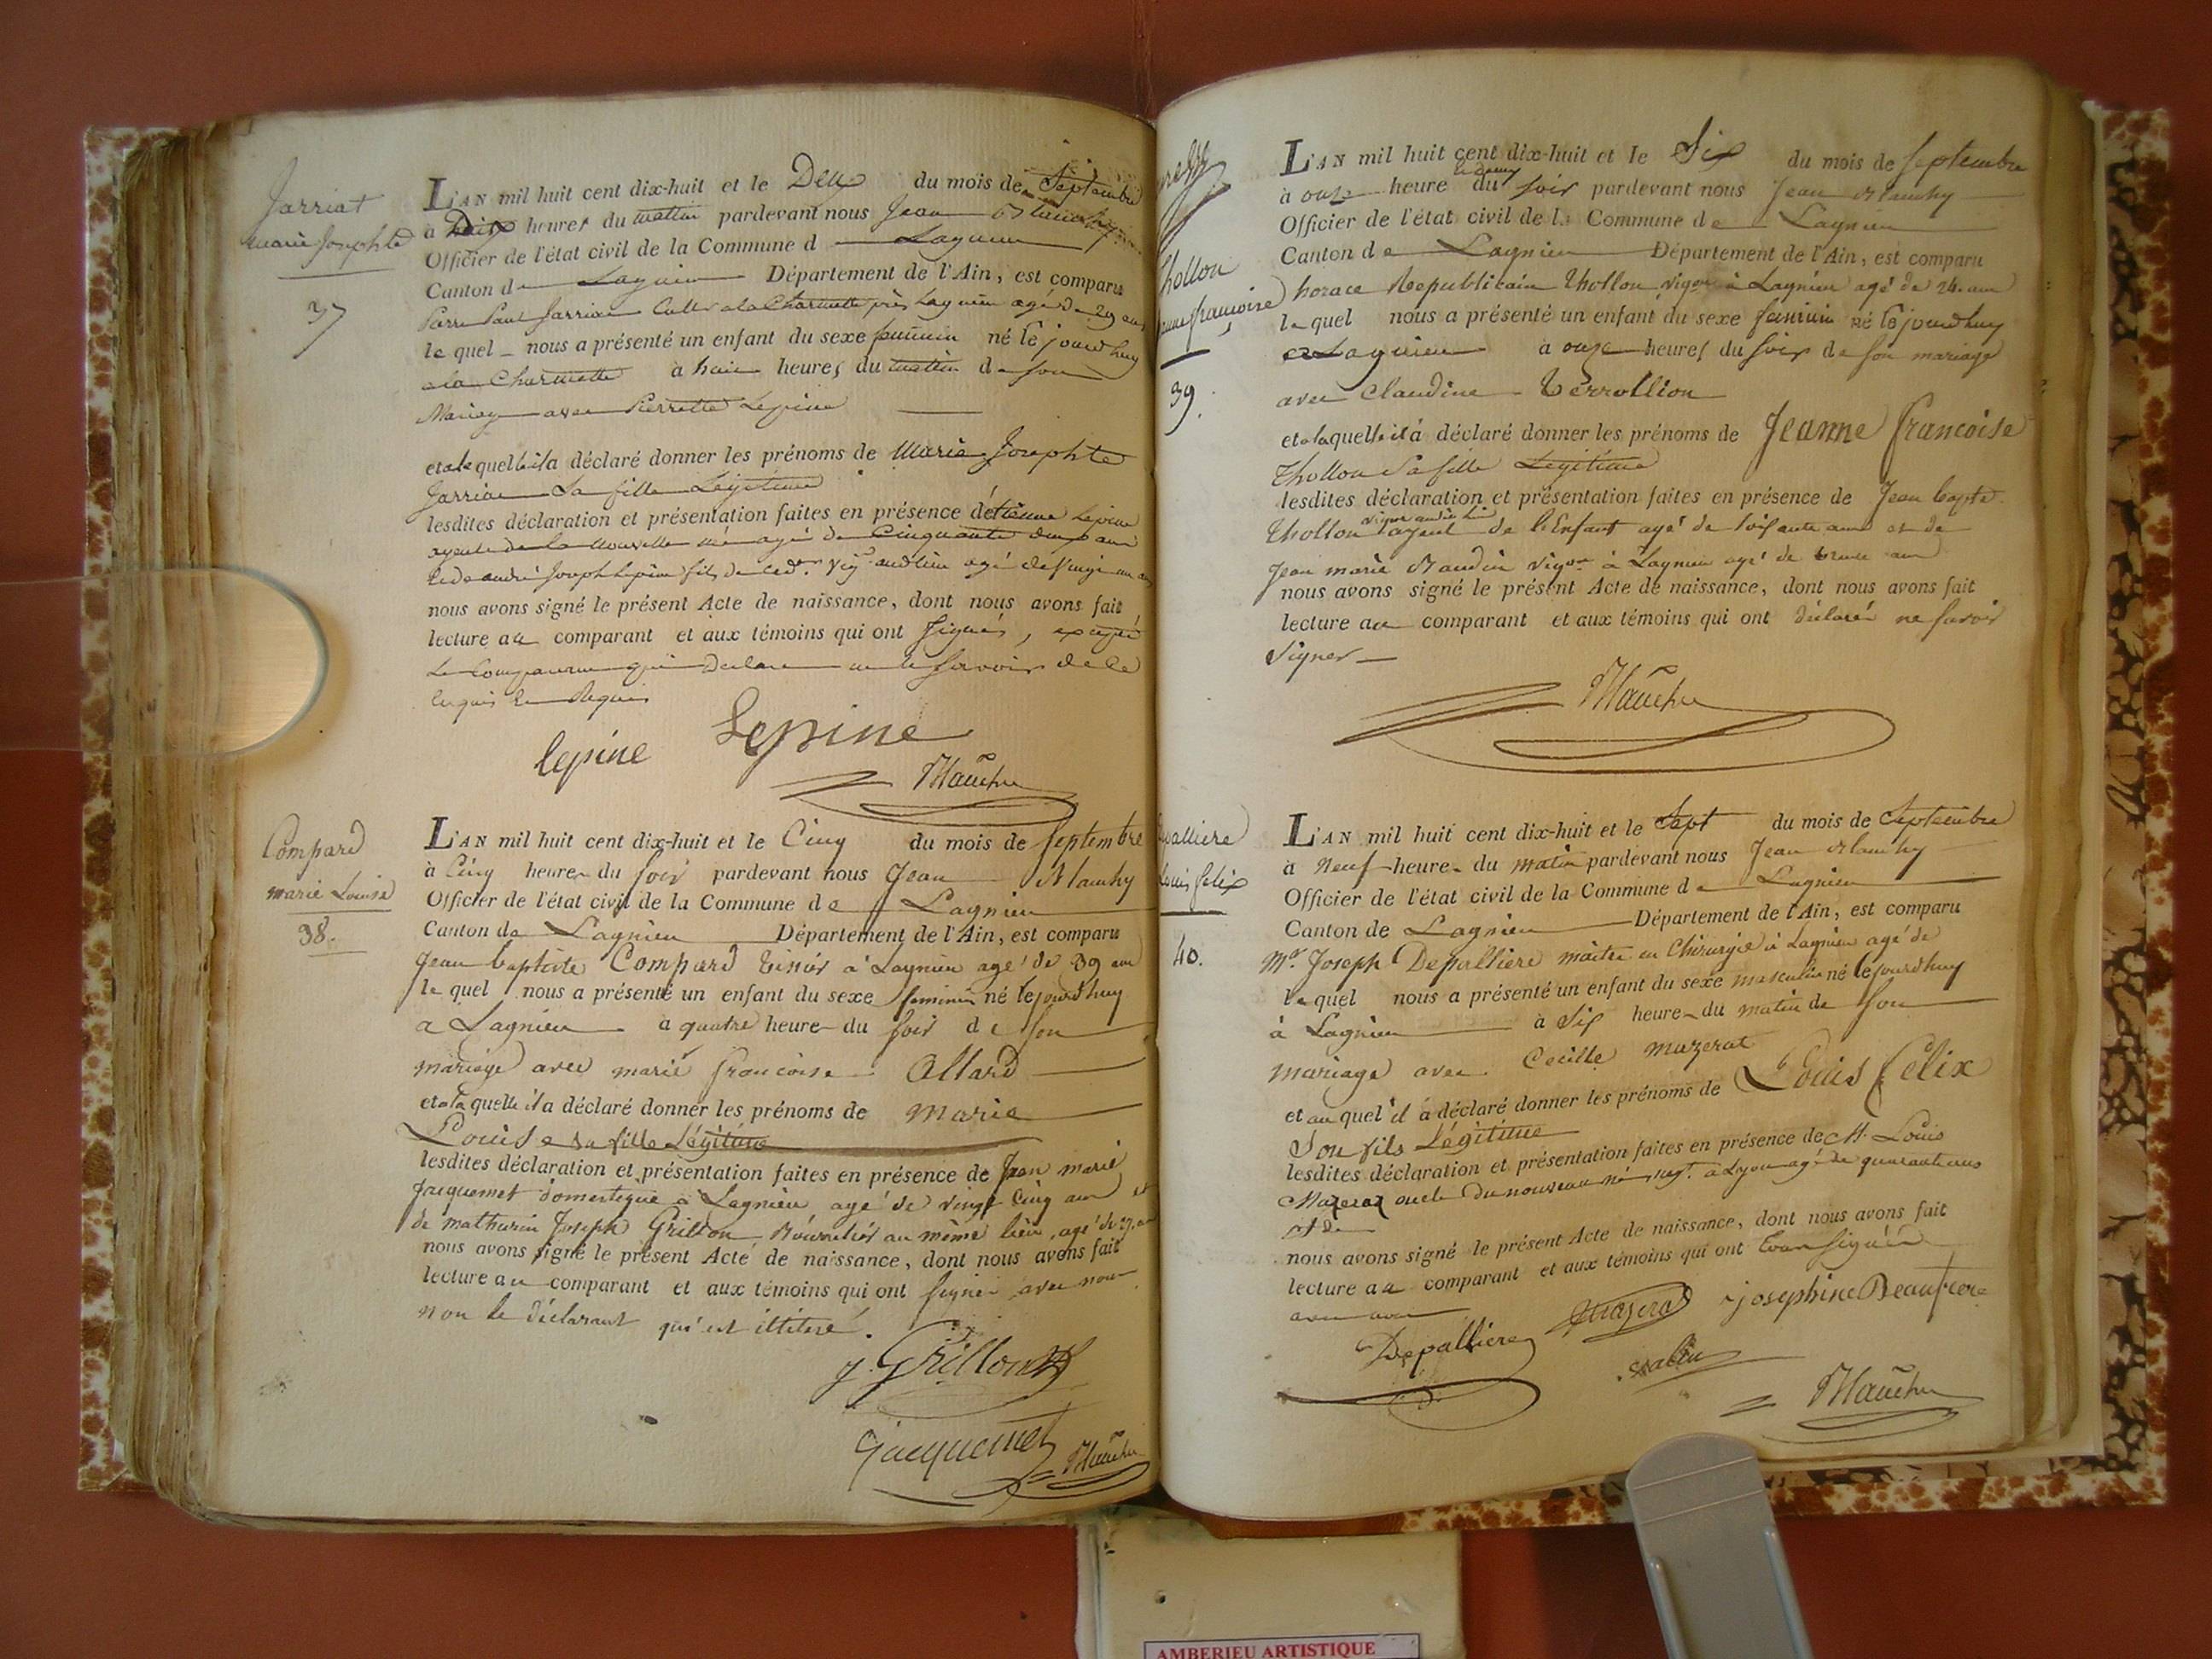 Jarriat
marie Josephte
37
L'AN mil huit cent dix-huit et le Deux du mois de Septembre
à Dix heures du matin pardevant nous Jean
Officier de l'état civil de la Commune d Lagnieu
Canton de Lagnieu Département de l'Ain, est comparu
Pierre Paul Jarriat Cultr a la Charmette près Lagnieu agé de 29 ans
le quel nous a présenté un enfant du sexe feminin né le jourdhuy
a la Charmette à huit heures du matin de son
Mariage avec Pierrette Lepine
et a la quelle il a déclaré donner les prénoms de Marie Josephte
Jarriat Sa fille Légitime
lesdites déclaration et présentation faites en présence d'étienne Lepine
ayeul de la nouvelle née agé de Cinquante deux ans
et de andré Joseph Lepine fils de led. vig. audit lieu agé de vingt un ans
nous avons signé le présent Acte de naissance, dont nous avons fait
lecture au comparant et aux témoins qui ont signés, excepté
Le Comparant qui a declaré ne le savoir de ce
enquis et Requis
lepine Lepine
Compard
marie Louise
38.
L'AN mil huit cent dix-huit et le Cinq du mois de Septembre
à Cinq heures du soir pardevant nous Jean
Officier de l'état civil de la Commune de Lagnieu
Canton de Lagnieu Département de l'Ain, est comparu
Jean baptiste Compard à Lagnieu agé de 39 ans
le quel nous a présenté un enfant du sexe feminin né le jourdhuy
a Lagnieu à quatre heure du soir de son
mariage avec marie francoise Allard
et a la quelle il a déclaré donner les prénoms de marie
Louise sa fille Légitime
lesdites déclaration et présentation faites en présence de Jean marie
Jacquemet domestique à Lagnieu agé de vingt cinq ans et
de mathurin Joseph Grillon Bourrelier au même lieu, agé de 27 ans
nous avons signé le présent Acte de naissance, dont nous avons fait
lecture au comparant et aux témoins qui ont signé avec nous
non le déclarant qui est illitéré.
J. Grillon
Jacquemet
Thollon
francoise
39.
L'AN mil huit cent dix-huit et le Six du mois de Septembre
à onze heure et demy du soir pardevant nous Jean
Officier de l'état civil de la Commune de Lagnieu
Canton de Lagnieu Département de l'Ain, est comparu
horace Republicain Thollon vigon à Lagnieu agé de 24 ans
le quel nous a présenté un enfant du sexe feminin né le jourdhuy
à Lagnieu à onze heures du soir de son mariage
avec Claudine
et a laquelle il à déclaré donner les prénoms de Jeanne francoise
Thollon Sa fille Légitime
lesdites déclaration et présentation faites en présence de Jean bapte
Thollon vigon audit lieu ayeul de l'Enfant agé de soixante ans et de
Jean marie vigon à Lagnieu agé de trente ans
nous avons signé le présent Acte de naissance, dont nous avons fait
lecture au comparant et aux témoins qui ont déclaré ne savoir
signer
Louis felix
40.
L'AN mil huit cent dix-huit et le Sept du mois de Septembre
à Neuf heure du matin pardevant nous Jean
Officier de l'état civil de la Commune de Lagnieu
Canton de Lagnieu Département de l'Ain, est comparu
Mr. Joseph Depalliere maitre en Chirurgie à Lagnieu agé de
le quel nous a présenté un enfant du sexe masculin né le jourdhuy
à Lagnieu à Six heure du matin de son
mariage avec Cecille mazerat
et au quel il à déclaré donner les prénoms de Louis felix
Son fils Légitime
lesdites déclaration et présentation faites en présence de M. Louis
Mazerat oncle du nouveau né, negt. à Lyon agé de quarante ans
et de
nous avons signé le présent Acte de naissance, dont nous avons fait
lecture au comparant et aux témoins qui ont tous signés
avec nous
Depalliere Mazerat josephine Beaufrere
AMBERIEU ARTISTIQUE